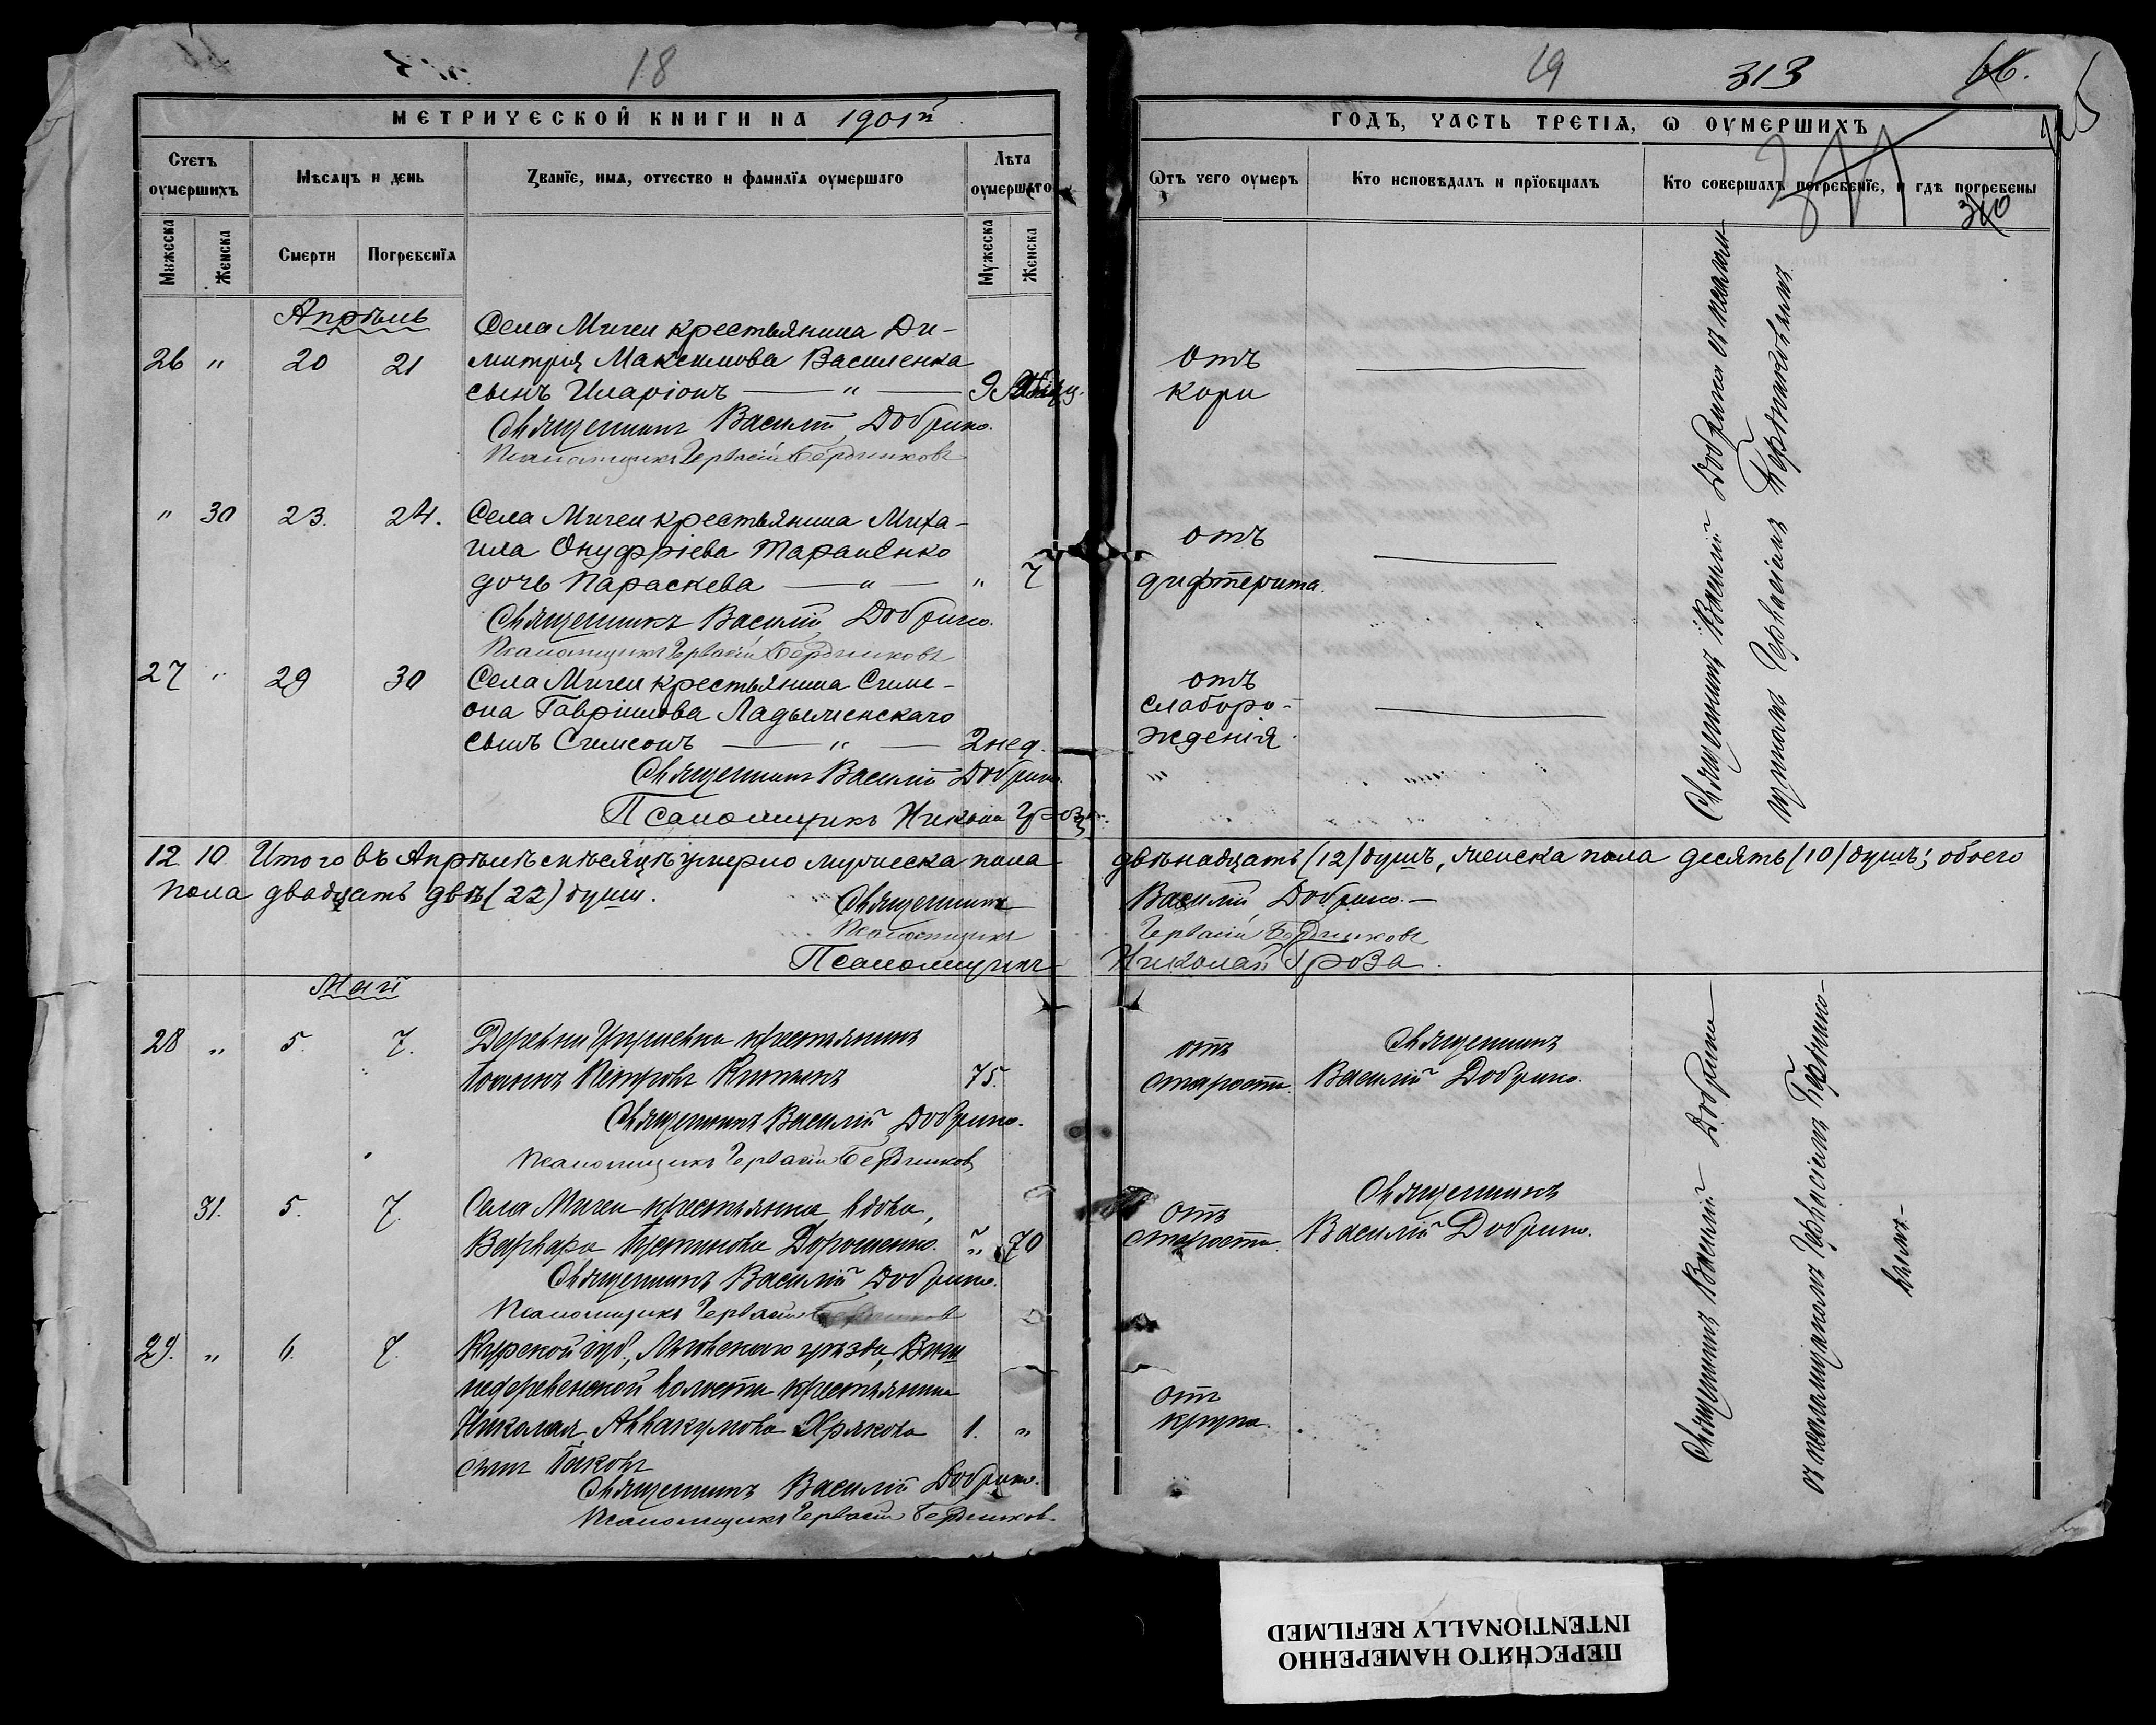 18
МЕТРИЧЕСКОЙ КНИГИ НА 1901й
Счетъ оумершихъ
Мѣсяцъ и день
Званїе, имя, отчество и фамилїя оумершаго
Лѣта оумершаго
Мужеска
Женска
Смерти
Погребенїя
Мужеска
Женска
Апрѣль
Села Мичеи крестьянина Ди-
26 " 20 21 митрія Максимова Василенка
сынъ Иларіонъ — " — 9
Священникъ Василій Добрино.
Псаломщикъ Гервасій Бердниковъ
" 30 23. 24. Села Мичеи крестьянина Миха-
ила Онуфріева Тарапенко
дочь Параскева — " — " 7
Священникъ Василій Добрино.
Псаломщикъ Гервасій Бердниковъ
27 " 29 30 Села Мичеи крестьянина Симе-
она Гавріилова Ладыженскаго
сынъ Симеонъ — " — 2 нед.
Священникъ Василій Добрино.
Псаломщикъ Николай Гроза
12 10 Итого въ Апрѣлѣ мѣсяцѣ умерло мужеска пола
пола двадцать двѣ (22) души.
Священникъ
Псаломщикъ
Псаломщикъ
Май
28 " 5. 7. Деревни крестьянинъ
Іоаннъ Петровъ 75.
Священникъ Василій Добрино.
Псаломщикъ Гервасій Бердниковъ
31. 5. 7. Села Мичеи крестьянка вдова,
Варвара Дорошенко. " 70
Священникъ Василій Добрино.
Псаломщикъ Гервасій Бердниковъ
29. " 6. 7. Курской губ., Льговскаго уѣзда,
недеревенской волости крестьянина
Николая Аввакумова Хрякова 1. "
сынъ Іаковъ
Священникъ Василій Добрино.
Псаломщикъ Гервасій Бердниковъ
19
313
66.
ГОДЪ, ЧАСТЬ ТРЕТІЯ, Ѡ ОУМЕРШИХЪ
311
310
Ѿтъ чего оумеръ
Кто исповѣдалъ и прїобщалъ
Кто совершалъ погребенїе, и гдѣ погребены
отъ
кори
отъ
дифтерита.
отъ
слаборо-
жденія
"
Священникъ Василій Добрино съ псалом-
щикомъ Гервасіемъ Бердниковымъ
двѣнадцать (12) душъ, женска пола десять (10) душъ; обоего
Василій Добрино. —
Гервасій Бердниковъ
Николай Гроза.
отъ
старости.
Священникъ
Василій Добрино.
отъ
старости.
Священникъ
Василій Добрино.
отъ
крупа.
Священникъ Василій Добрино
съ псаломщикомъ Гервасіемъ Берднико-
вымъ.
ПЕРЕСНЯТО НАМЕРЕННО
INTENTIONALLY REFILMED